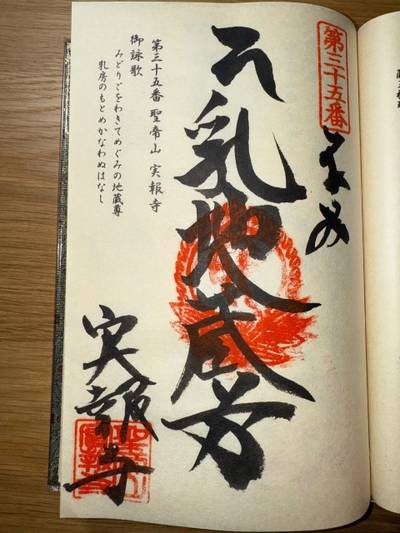 第三十五番
乳地蔵
第三十五番 聖帝山 実報寺
御詠歌
みどりごをわきてめぐみの地蔵尊
乳房のもとめかなわぬはなし
実報寺